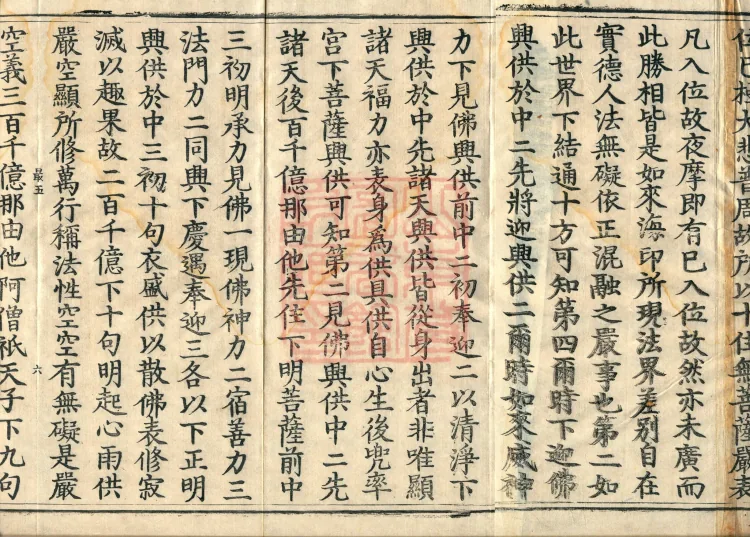 位已極大悲普周故所以十住無菩薩嚴表
凡入位故夜摩即有已入位故然亦未廣而
此勝相皆是如來海印所現法界差別自在
實德人法無礙依正混融之嚴事也第二如
此世界下結通十方可知第四爾時下迎佛
興供於中二先將迎興供二爾時如來威神
力下見佛興供前中二初奉迎二以清淨下
興供於中先諸天興供皆從身出者非唯顯
諸天福力亦表身爲供具供自心生後兜率
宮下菩薩興供可知第二見佛興供中二先
諸天後百千億那由他先住下明菩薩前中
三初明承力見佛一現佛神力二宿善力三
法門力二同興下慶遇奉迎三各以下正明
興供於中三初十句衣盛供以散佛表修寂
滅以趣果故二百千億下十句明起心雨供
嚴空顯所修萬行稱法性空空有無礙是嚴
最五 六
空義三百千億那由他阿僧祇天子下九句